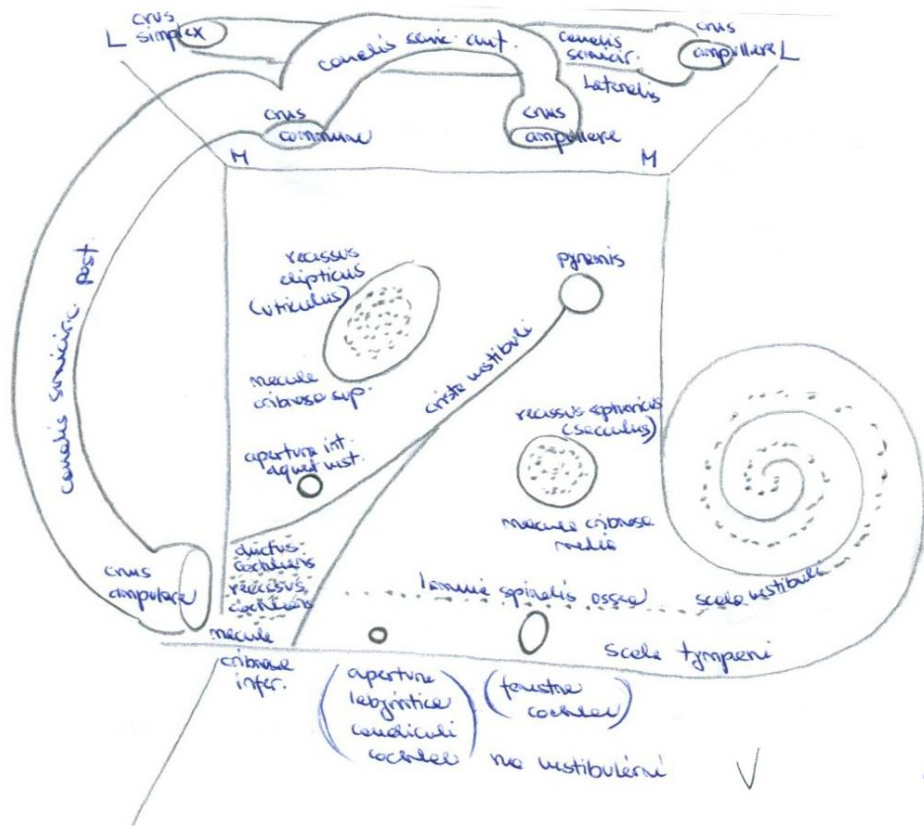 crus
simplex
L
canalis semic. ant.
canalis
semicirc.
Lateralis
crus
ampullare L
crus
commune
crus
ampullare
M
M
canalis semicirc. post.
recessus
elipticus
(utriculus)
pyramis
macula
cribrosa sup.
crista vestibuli
recessus sphericus
(sacculus)
apertura int.
aquet vest.
macula cribrosa
media
ductus
cochlearis
recessus
cochlearis
crus
ampulare
lamina spiralis ossea
scala vestibuli
macula
cribrosa
infer.
scala tympani
(apertura
labyrintica
canaliculi
cochleae)
(fenestra
cochleae)
V